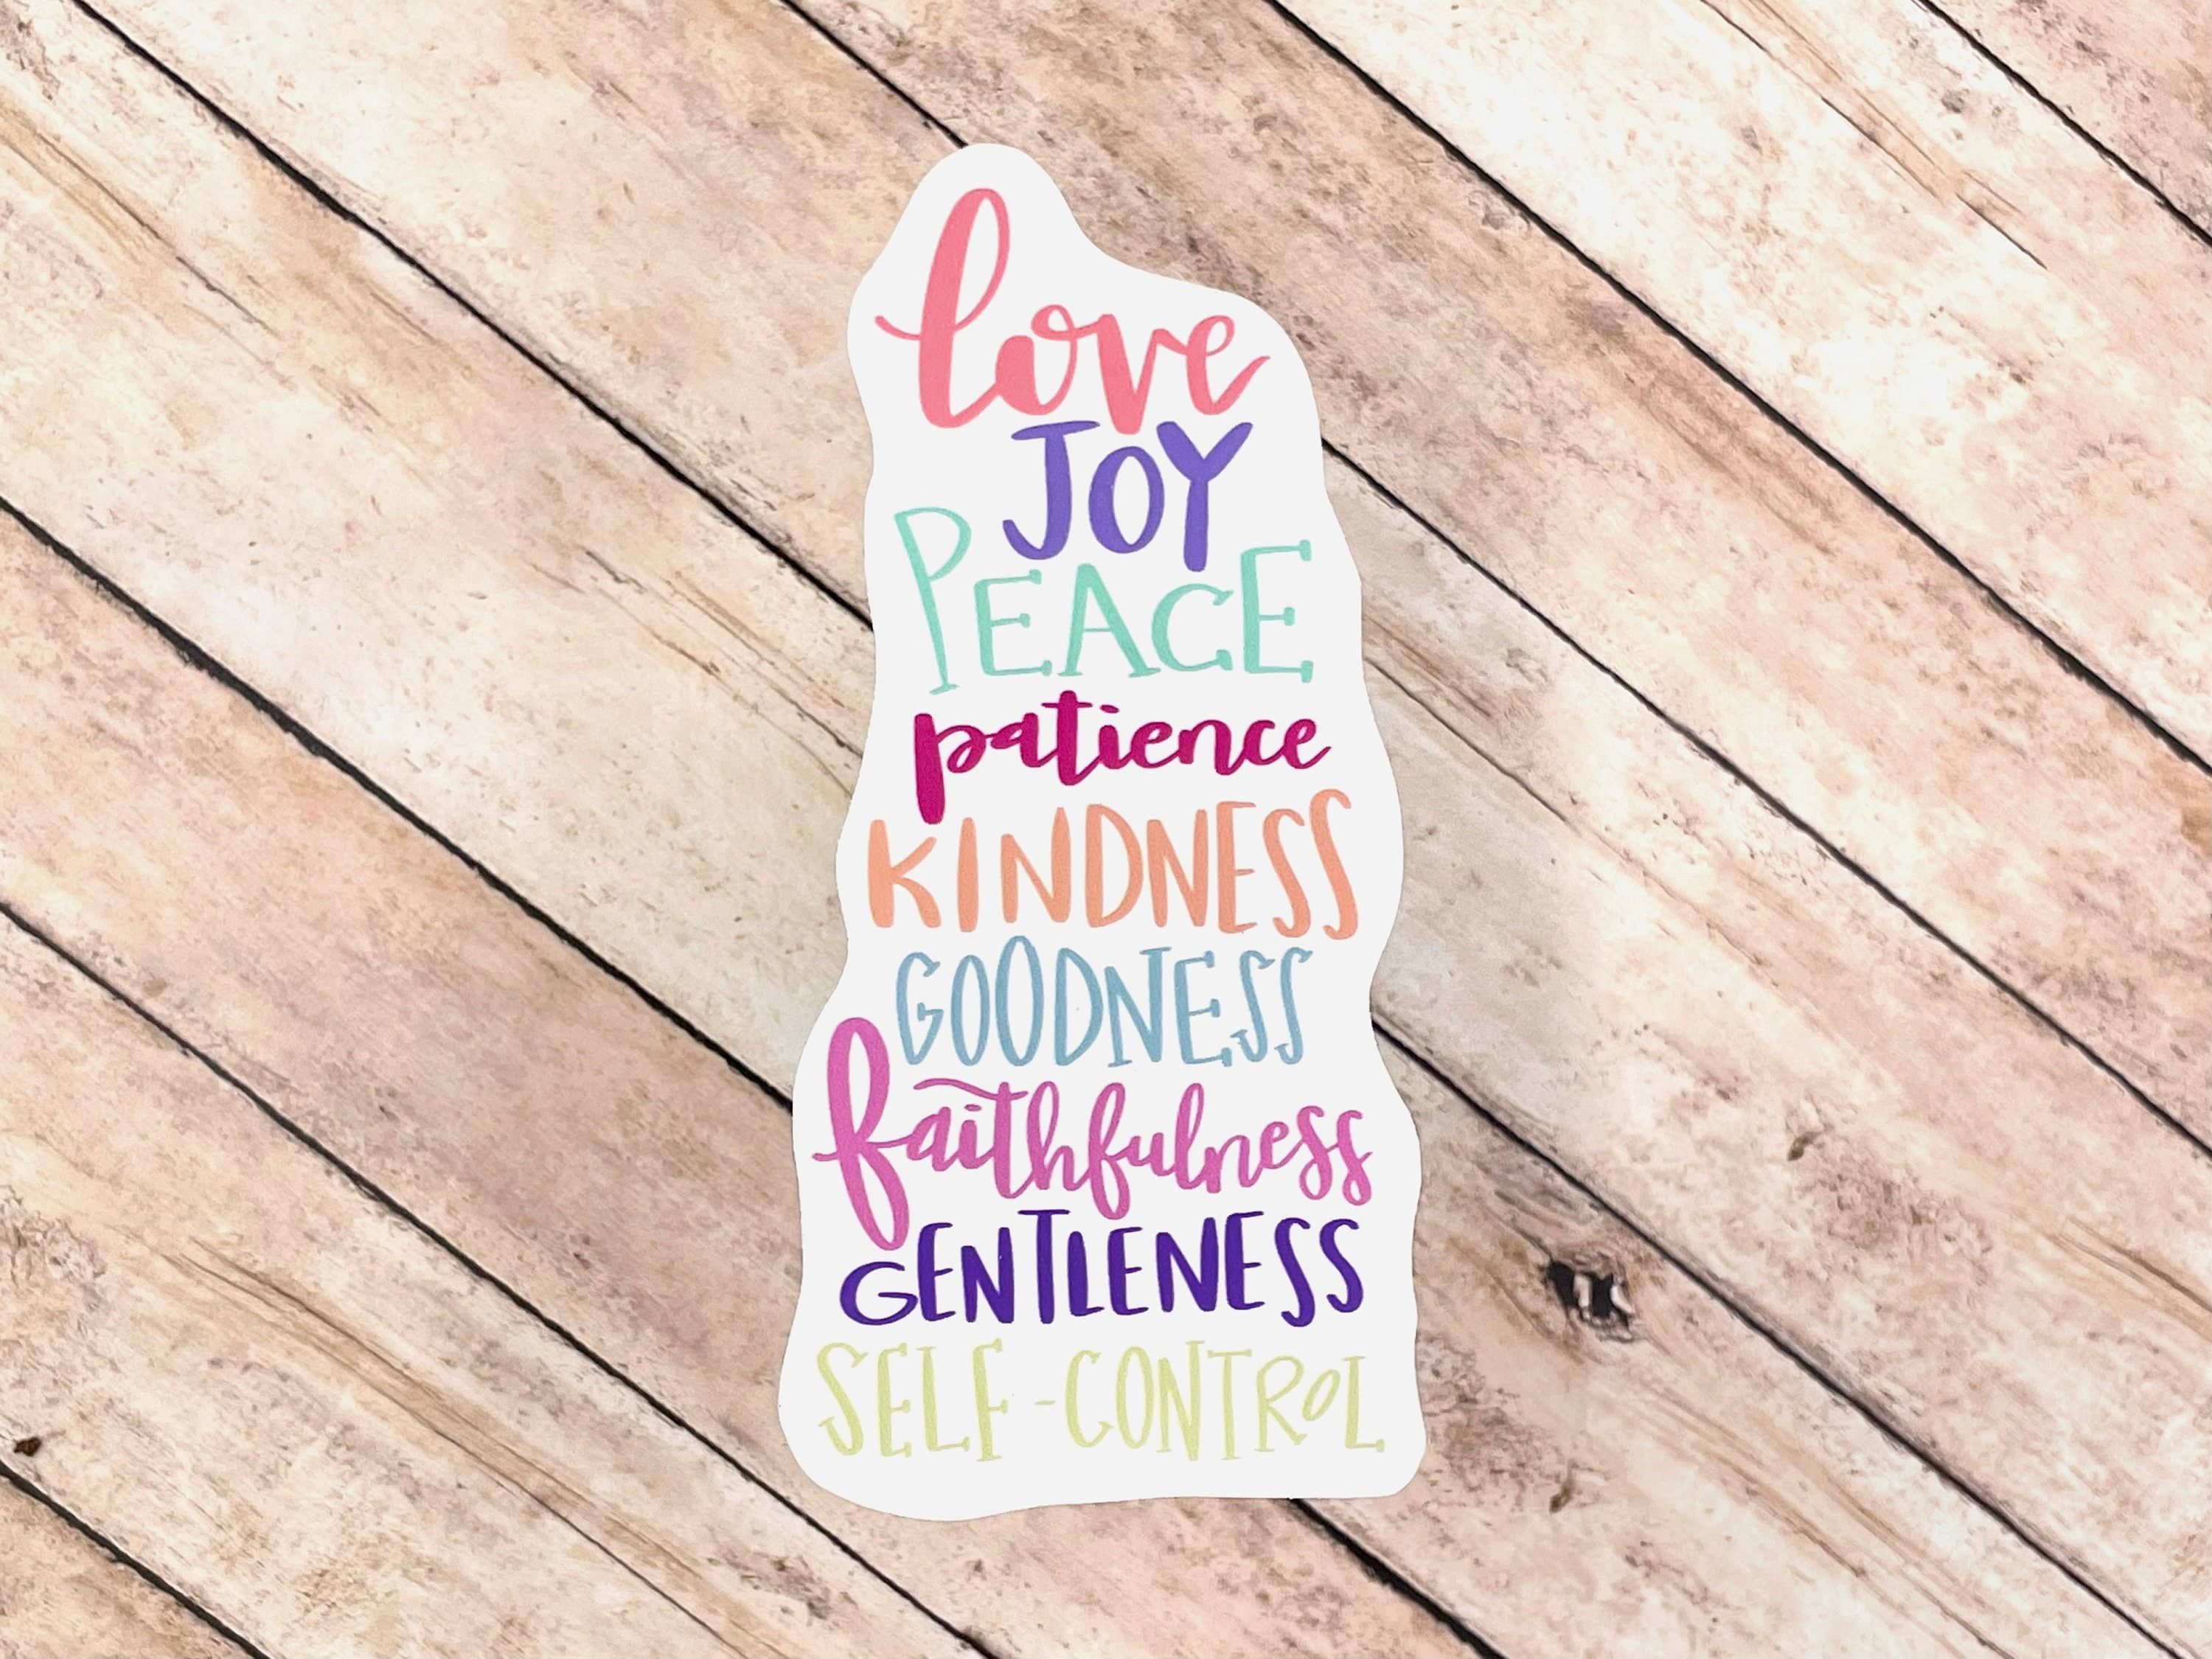 love
JOY
PEACE
patience
KINDNESS
GOODNESS
faithfulness
GENTLENESS
SELF-CONTROL